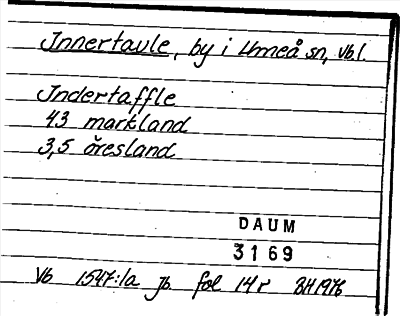 Innertavle, by i Umeå sn, Vb.l.
Indertaffle
43 markland
3,5 öresland
DAUM
3169
Vb 1547:1a jb. fol 14 r BH 1976